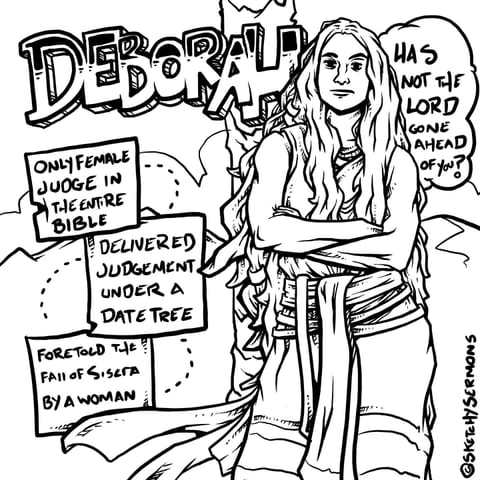 DEBORAH
HAS
NOT THE
LORD
GONE
AHEAD
OF YOU?
ONLY FEMALE
JUDGE IN
THE ENTIRE
BIBLE
DELIVERED
JUDGEMENT
UNDER A
DATE TREE
FORETOLD THE
FALL OF SISERA
BY A WOMAN
@SKETCHYSERMONS